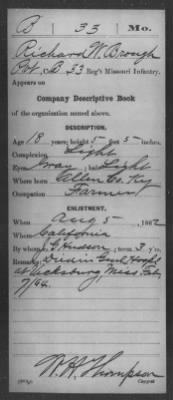 B 33 Mo.
Richard W. Brough
Pvt, Co. B, 33 Reg't Missouri Infantry.
Appears on
Company Descriptive Book
of the organization named above.
DESCRIPTION.
Age 18 years; height 5 feet 5 inches.
Complexion Light
Eyes Gray; hair Light
Where born Allen Co. Ky
Occupation Farmer
ENLISTMENT.
When Aug 5, 1862
Where California
By whom G. Hudson; term 3 y'rs.
Remarks: Died in Genl Hosptl
at Vicksburg, Miss, Feb,
7/64.
W. H. Thompson
Copyist.